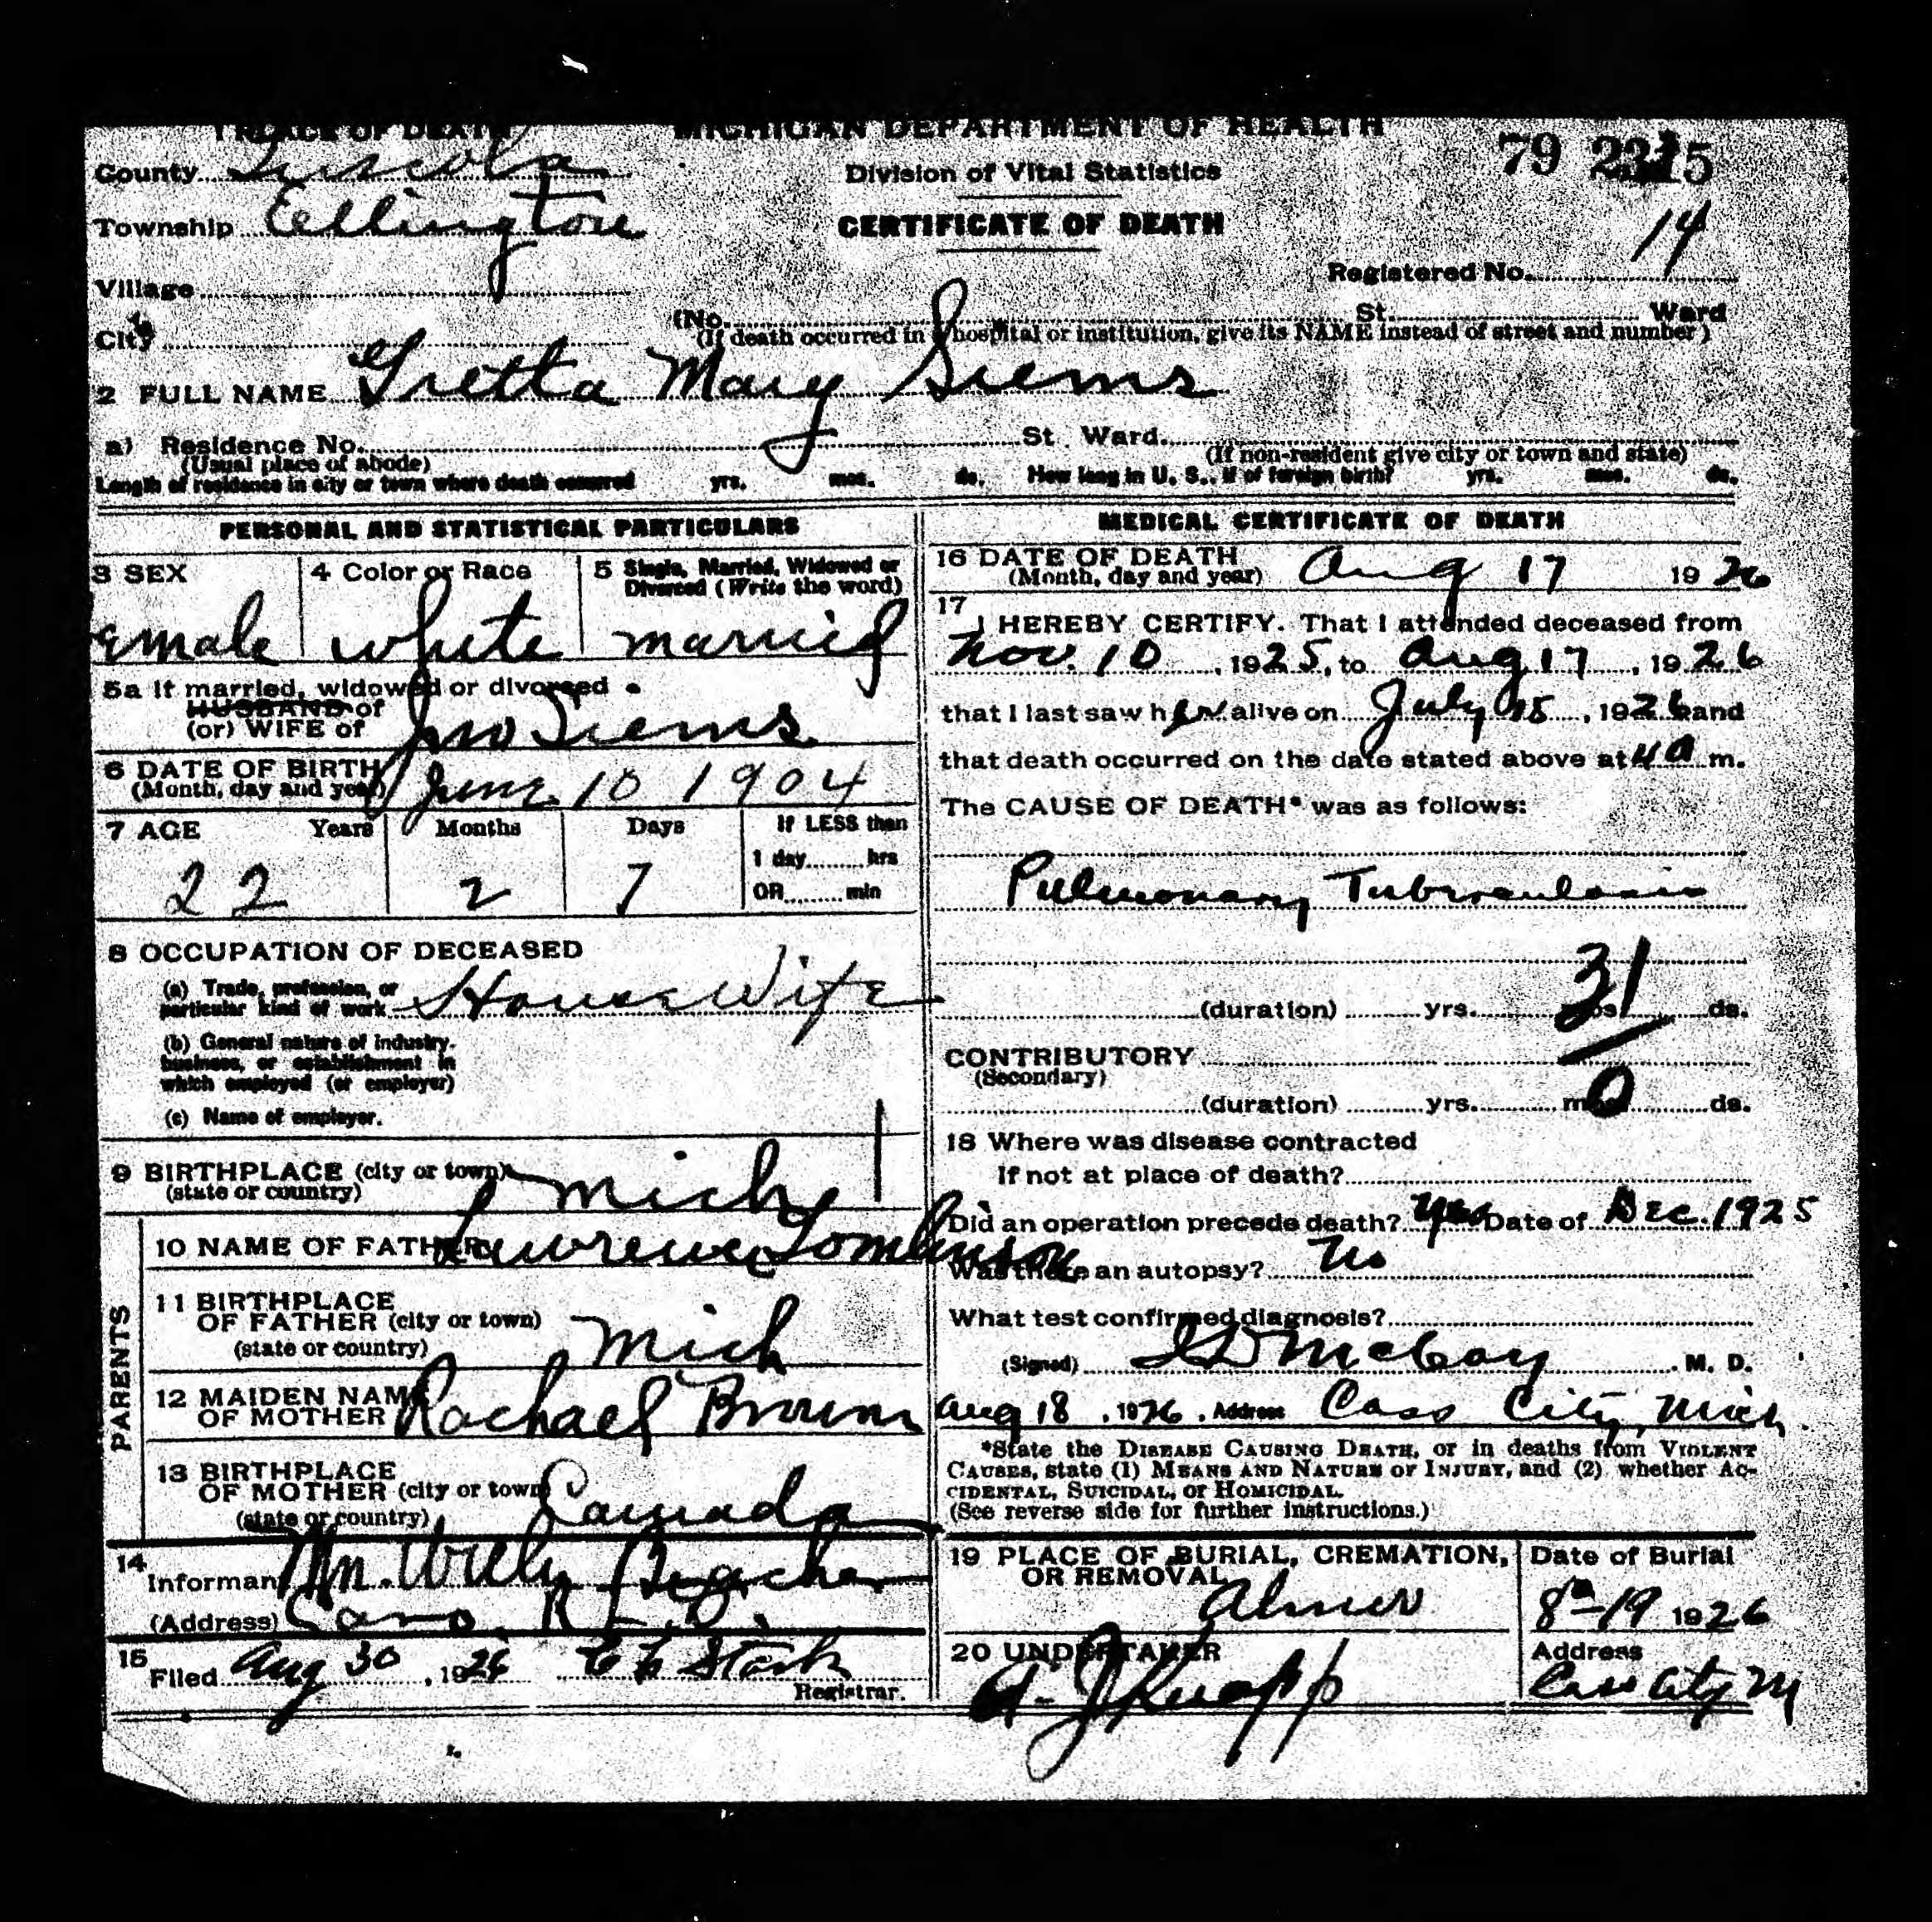 1 PLACE OF DEATH
MICHIGAN DEPARTMENT OF HEALTH
County Tuscola
Division of Vital Statistics
79
Township Ellington
CERTIFICATE OF DEATH
14
Registered No.
Village
City
(No. St. Ward
(If death occurred in a hospital or institution, give its NAME instead of street and number)
2 FULL NAME Gretta Mary Siems
a) Residence No. St. Ward.
(Usual place of abode) (If non-resident give city or town and state)
Length of residence in city or town where death occurred yrs. mos. ds. How long in U. S., if of foreign birth? yrs. mos. ds.
PERSONAL AND STATISTICAL PARTICULARS
3 SEX 4 Color or Race 5 Single, Married, Widowed or
Divorced (Write the word)
emale white married
5a If married, widowed or divorced
HUSBAND of
(or) WIFE of Jno Siems
6 DATE OF BIRTH
(Month, day and year) June 10 1904
7 AGE Years Months Days If LESS than
1 day hrs
22 2 7 OR min
8 OCCUPATION OF DECEASED
(a) Trade, profession, or
particular kind of work House Wife
(b) General nature of industry,
business, or establishment in
which employed (or employer)
(c) Name of employer.
9 BIRTHPLACE (city or town)
(state or country) Mich
PARENTS
10 NAME OF FATHER Lawrence Tomlinson
11 BIRTHPLACE
OF FATHER (city or town)
(state or country) Mich
12 MAIDEN NAME
OF MOTHER Rachael Brown
13 BIRTHPLACE
OF MOTHER (city or town)
(state or country) Canada
14
Informant
(Address) Caro, R.F.D.
15
Filed Aug 30, 1926
Registrar.
MEDICAL CERTIFICATE OF DEATH
16 DATE OF DEATH
(Month, day and year) Aug 17 1926
17
I HEREBY CERTIFY. That I attended deceased from
Nov. 10, 1925, to Aug 17, 1926
that I last saw her alive on July 15, 1926 and
that death occurred on the date stated above at 4 a m.
The CAUSE OF DEATH* was as follows:
Pulmonary Tuberculosis
31
(duration) yrs. mos. ds.
CONTRIBUTORY
(Secondary)
0
(duration) yrs. mos. ds.
18 Where was disease contracted
If not at place of death?
Did an operation precede death? Yes Date of Dec. 1925
Was there an autopsy? No
What test confirmed diagnosis?
(Signed) McCoy M. D.
Aug 18, 1926, Address Cass City, Mich.
*State the DISEASE CAUSING DEATH, or in deaths from VIOLENT
CAUSES, state (1) MEANS AND NATURE OF INJURY, and (2) whether AC-
CIDENTAL, SUICIDAL, or HOMICIDAL.
(See reverse side for further instructions.)
19 PLACE OF BURIAL, CREMATION,
OR REMOVAL
Almer
Date of Burial
8-19 1926
20 UNDERTAKER
A. J Knapp
Address
Cass City M